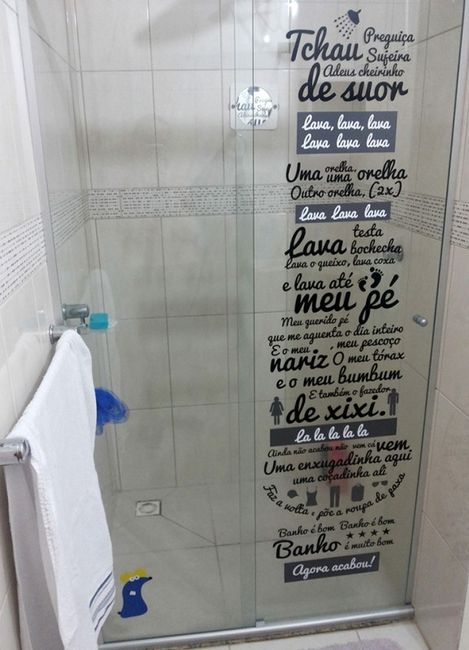 Tchau Preguiça
Sujeira
Adeus cheirinho
de suor
Lava, lava, lava
Lava lava lava
Uma orelha, uma orelha
Outro orelha, (2x)
Lava Lava lava
Lava testa
bochecha
lava o queixo, lava coxa
e lava até
meu pé
Meu querido pé
que me aguenta o dia inteiro
E o meu nariz meu pescoço
O meu tórax
e o meu bumbum
E também o fazedor
de xixi.
La la la la la
Ainda não acabou não vem cá vem
Uma enxugadinha aqui
uma coçadinha ali
Faz a volta e põe a roupa de paxa
Banho é bom Banho é bom
Banho é muito bom
Agora acabou!